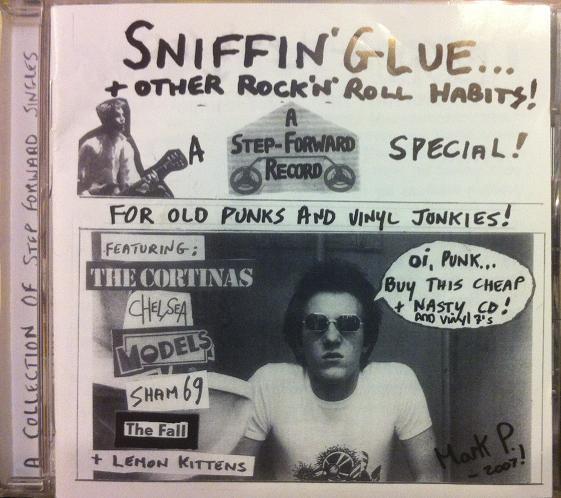 A COLLECTION OF STEP FORWARD SINGLES
SNIFFIN' GLUE...
+ OTHER ROCK 'N' ROLL HABITS!
A
A
STEP-FORWARD
RECORD
SPECIAL!
FOR OLD PUNKS AND VINYL JUNKIES!
FEATURING:
THE CORTINAS
CHELSEA
MODELS
SHAM 69
The Fall
+ LEMON KITTENS
Oi, PUNK...
BUY THIS CHEAP
+ NASTY CD!
AND VINYL 7's
Mark P.
- 2007!